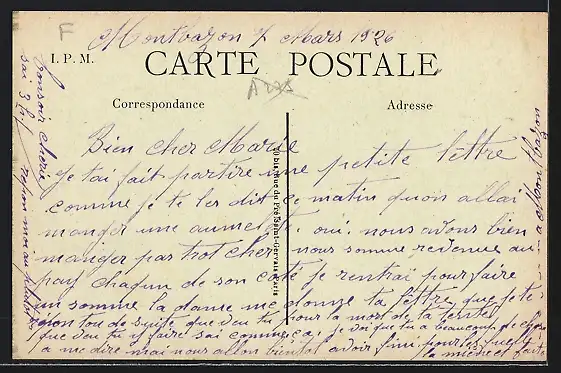 Montbazon 7 Mars 1926
I. P. M.
CARTE POSTALE
Correspondance
Adresse
Bien cher Marie
Je tai fait partire une petite lêttre
comme je te les dit ce matin quon allai
manger une aumelet. oui. nous avons bien
manger pas trot cher nous somme revenue au
pay chaqun de son coté je rentrai pour faire
un somme la dame me donne ta lêttre que je te
répon tou de suite que veu tu pour la mort de ta tente
que veu tu y faire sai comme ça je voi que tu a beaucoup de
a me dire mai nous allon bientot avoir fini pour les
la miene et
bonsoir cherie
sai 3 h
répon moi au
a Montbazon
bis, rue du Pré-Saint-Gervais Paris